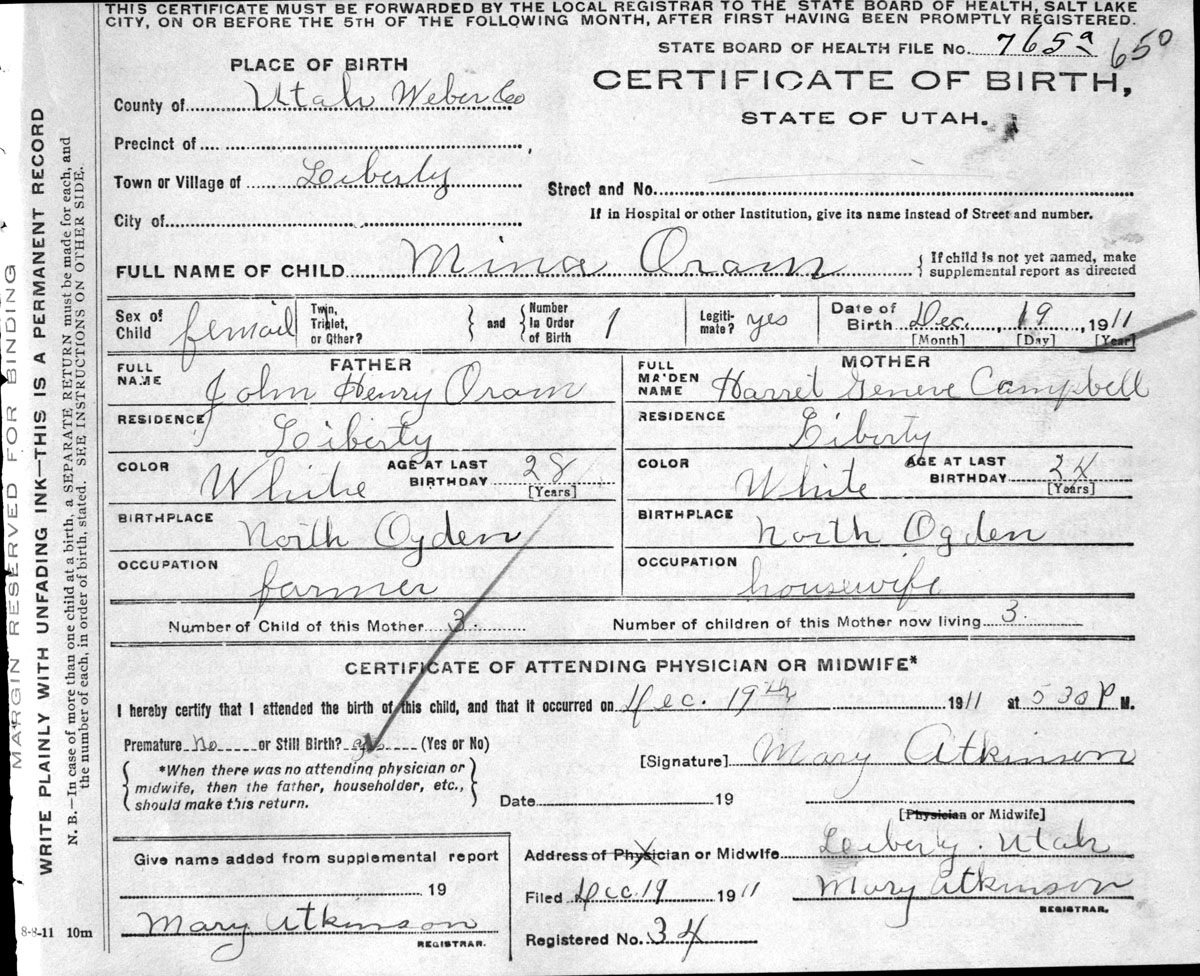 THIS CERTIFICATE MUST BE FORWARDED BY THE LOCAL REGISTRAR TO THE STATE BOARD OF HEALTH, SALT LAKE
CITY, ON OR BEFORE THE 5TH OF THE FOLLOWING MONTH, AFTER FIRST HAVING BEEN PROMPTLY REGISTERED.
STATE BOARD OF HEALTH FILE No. 765a 650
PLACE OF BIRTH
CERTIFICATE OF BIRTH,
STATE OF UTAH.
County of Utah Weber Co
Precinct of
Town or Village of Liberty
Street and No.
City of
If in Hospital or other Institution, give its name instead of Street and number.
FULL NAME OF CHILD Mina Oram
{ If child is not yet named, make
supplemental report as directed
Sex of Child femail
Twin, Triplet, or Other? } and { Number In Order of Birth 1
Legitimate? yes
Date of Birth Dec. 19, 1911
[Month] [Day] [Year]
FATHER
FULL NAME John Henry Oram
MOTHER
FULL MAIDEN NAME Harret Geneve Campbell
RESIDENCE Liberty
RESIDENCE Liberty
COLOR White AGE AT LAST BIRTHDAY 28 [Years]
COLOR White AGE AT LAST BIRTHDAY 24 [Years]
BIRTHPLACE North Ogden
BIRTHPLACE North Ogden
OCCUPATION farmer
OCCUPATION housewife
Number of Child of this Mother 3
Number of children of this Mother now living 3.
CERTIFICATE OF ATTENDING PHYSICIAN OR MIDWIFE*
I hereby certify that I attended the birth of this child, and that it occurred on Dec. 19th 1911 at 530 P M.
Premature No or Still Birth? (Yes or No)
[Signature] Mary Atkinson
{ *When there was no attending physician or
midwife, then the father, householder, etc.,
should make this return. }
Date 19
[Physician or Midwife]
Give name added from supplemental report
19
Mary Atkinson
REGISTRAR.
Address of Physician or Midwife Leiberty. Utah
Filed Dec. 19 1911 Mary Atkinson
REGISTRAR.
Registered No. 34
8-8-11 10m
MARGIN RESERVED FOR BINDING
WRITE PLAINLY WITH UNFADING INK—THIS IS A PERMANENT RECORD
N. B.—In case of more than one child at a birth, a SEPARATE RETURN must be made for each, and
the number of each, in order of birth, stated. SEE INSTRUCTIONS ON OTHER SIDE.